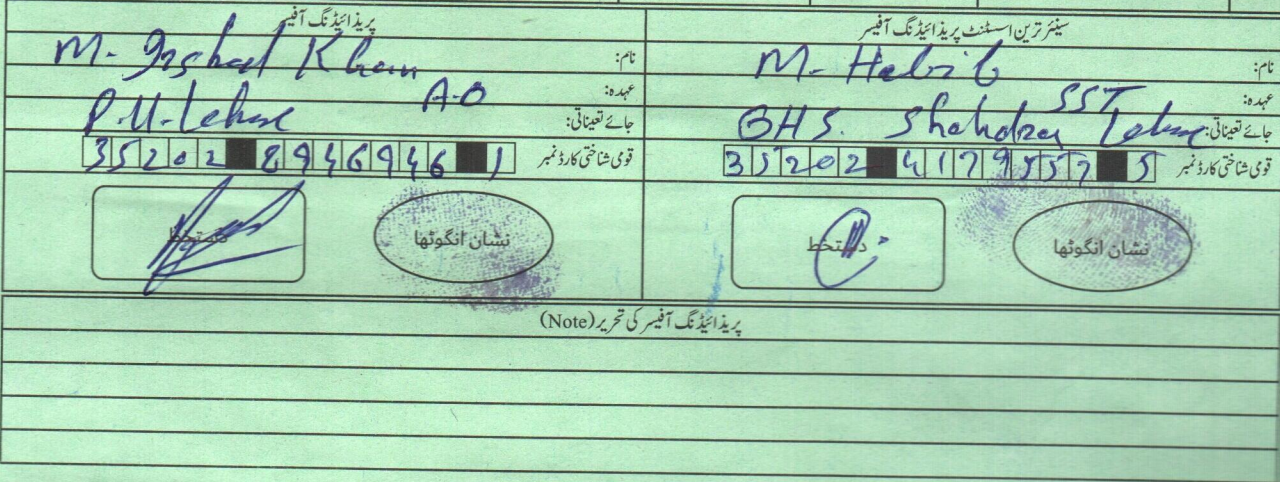 سینئر ترین اسسٹنٹ پریذائیڈنگ آفیسر
نام: M. Habib
عہدہ: SST
جائے تعیناتی: GHS. Shahdra Lahore
قومی شناختی کارڈ نمبر 35202 4179557 5
دستخط
نشان انگوٹھا
پریذائیڈنگ آفیسر
نام: M. Irshad Khan
عہدہ: A.O
جائے تعیناتی: P.U. Lahore
قومی شناختی کارڈ نمبر 35202 8946946 1
دستخط
نشان انگوٹھا
پریذائیڈنگ آفیسر کی تحریر (Note)